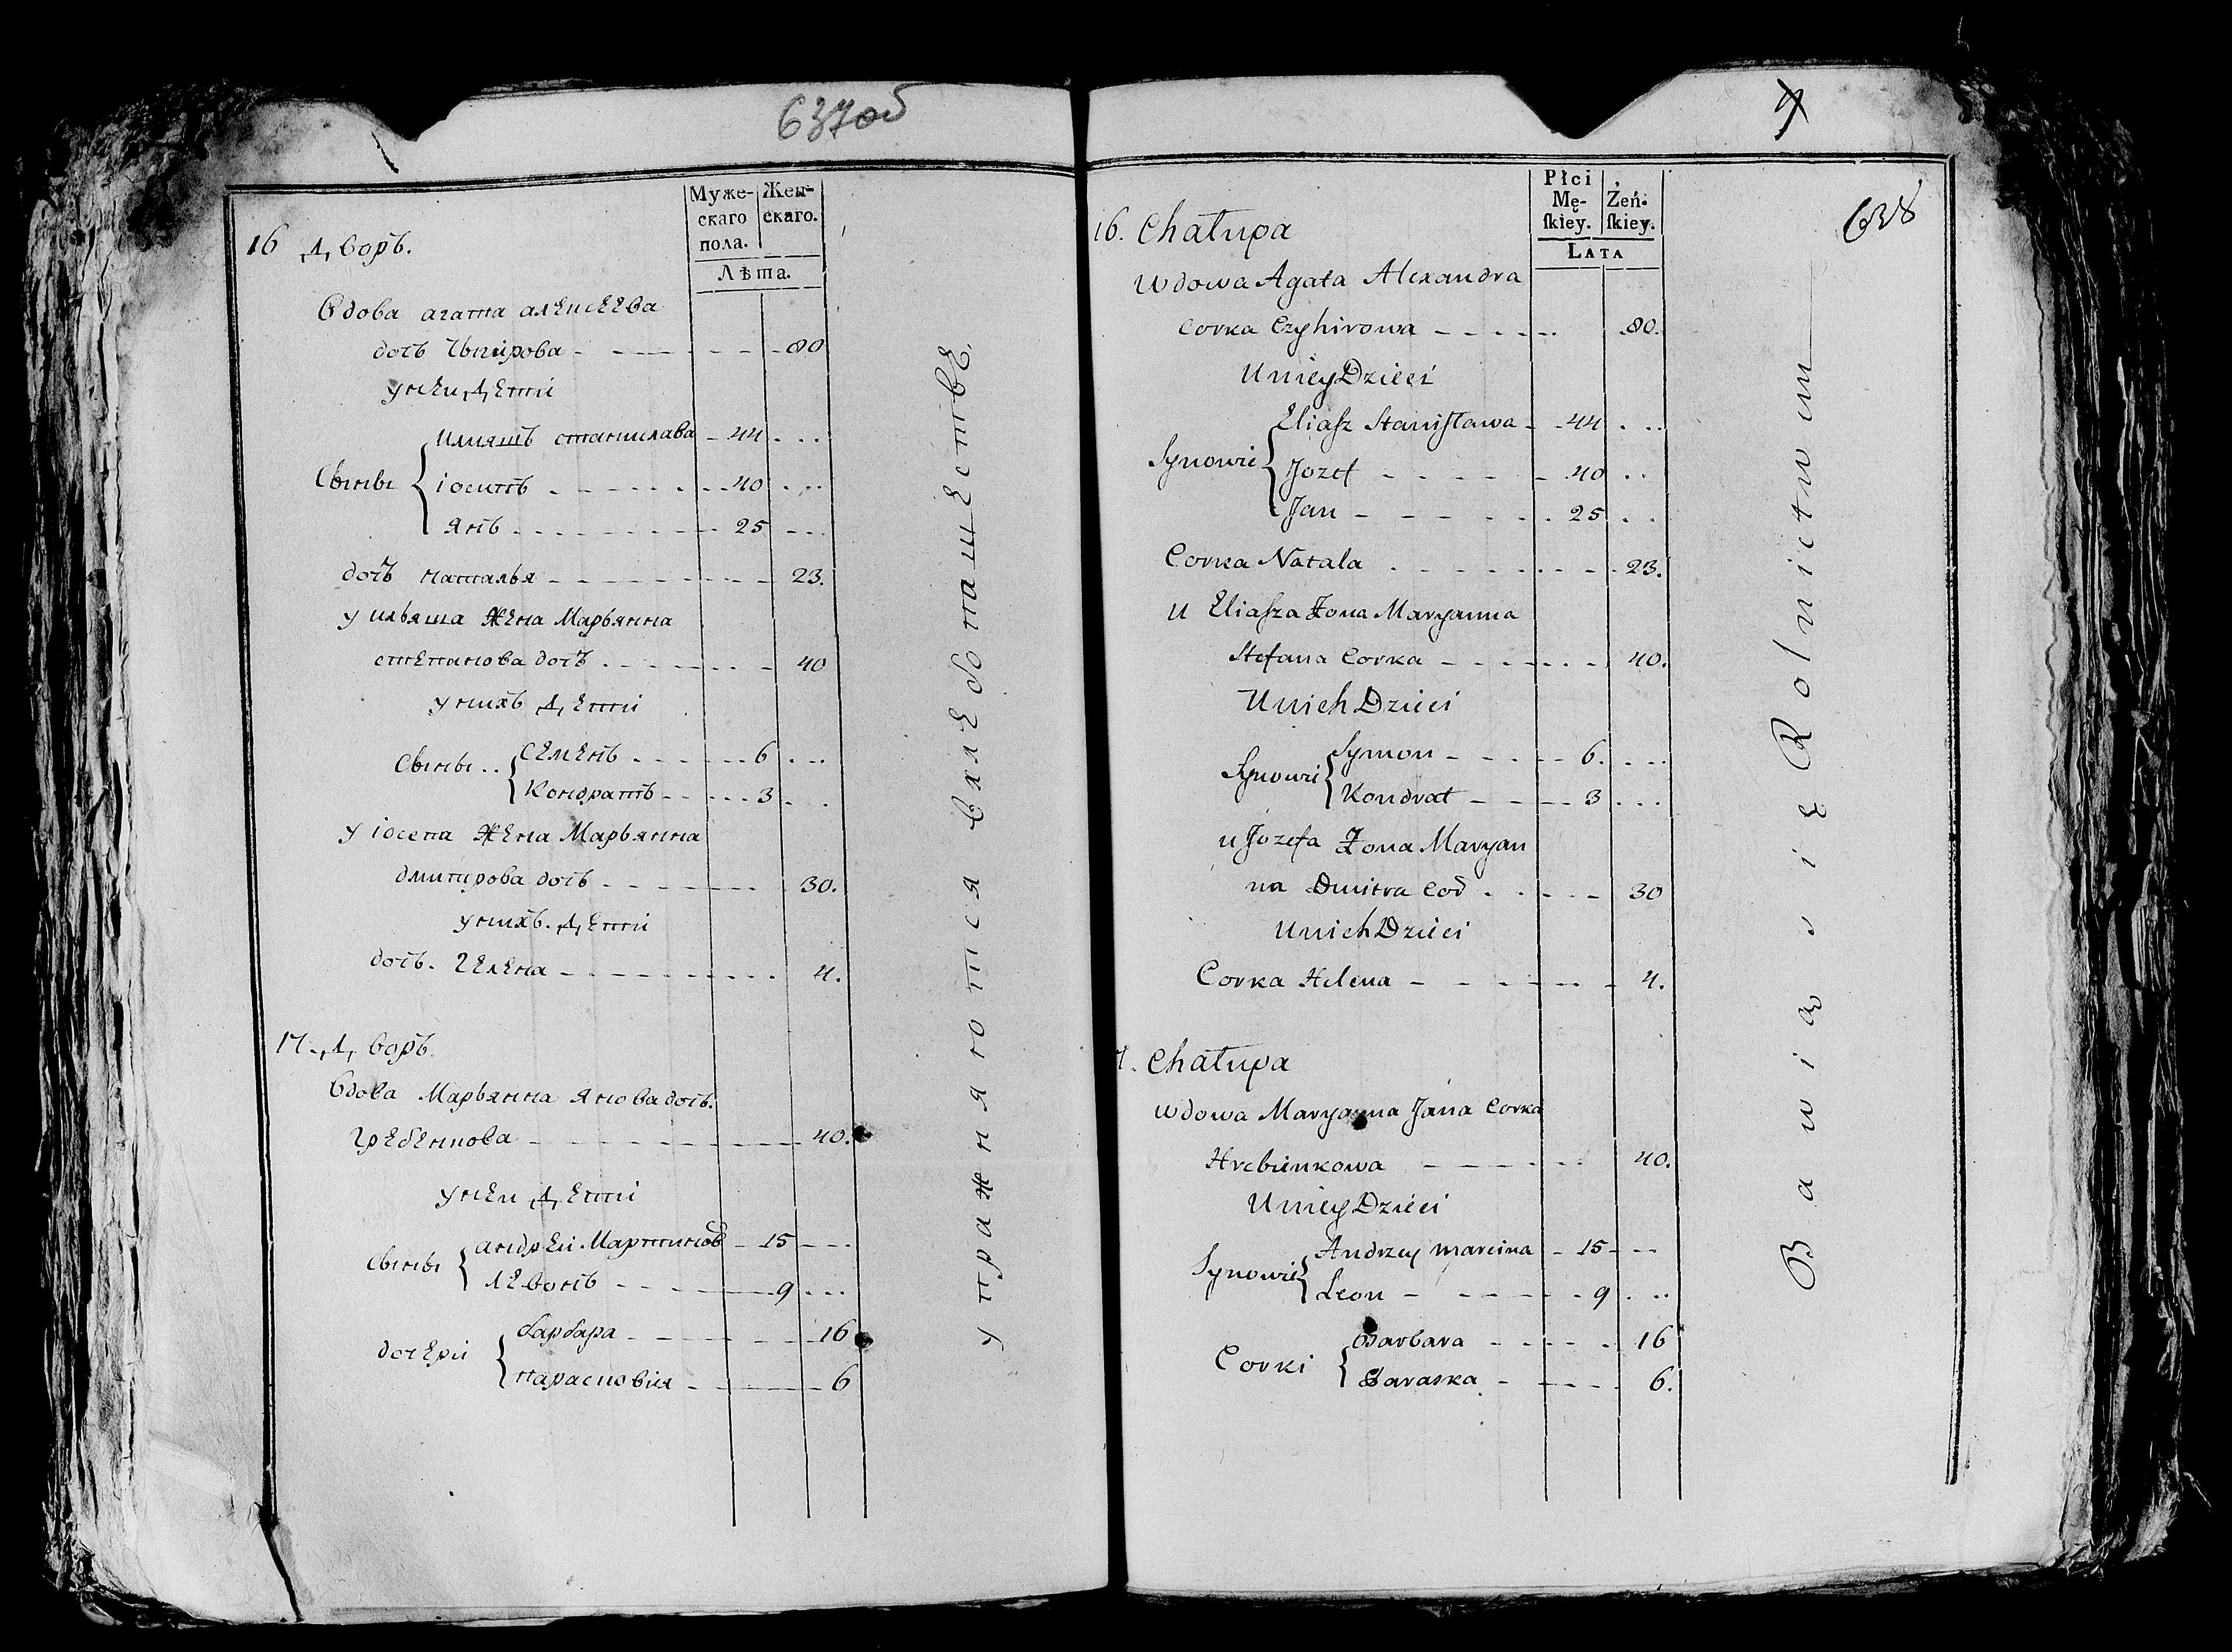 637об
Муже-
скаго
пола.
Жен-
скаго.
Лѣта.
16 Дворъ.
Вдова агата алеисеева
дочь Чыгирова - - - - - 80
у неи Дети
Сыны
Илияшъ станислава - 44 . . .
іосипъ . - - - - 40 . . .
янъ . - - - - 25 - - .
дочь наталья - - - - - 23.
у ильяша Жена Марьянна
степанова дочь . - - - - 40
у нихъ Дети
Сыны . .
Семенъ . - - - 6 . . .
Кондратъ - - - - 3 . .
у іосепа Жена Марьянна
дмитрова дочь . - - - - 30.
у нихъ . Дети
дочь . Гелена - . - - - - 4.
17. Дворъ
Вдова Марьянна янова дочь.
Гребенкова - - - - - 40.
у неи Дети
сыны
андреи Мартиновъ - 15 - - .
левонъ - - - - 9 . . .
дочери
барбара - - - - - 16
парасковия - - - - 6
упражняются въ хлебопашестве.
9
638
Płci
Mę-
ſkiey.
Żeń-
ſkiey.
LATA
16. Chałupa
Wdowa Agata Alexandra
Corka Czyhirowa - - - - . . 80.
U niey Dzieci
Synowie
Eliaſz Staniſława - - 44 . . .
Jozef - - - - - 40 . .
Jan - - - - - . 25 . .
Corka Natala . - - - - - 23.
u Eliaſza Żona Maryanna
Stefana Corka - - - . . - 40.
U nich Dzieci
Synowie
Symon - - - - - 6. . . .
Kondrat - - - - 3 . . .
u Jozefa Żona Maryan
na Dmitra Cod . - - - - 30
U nich Dzieci
Corka Helena - - - - . . - 4.
7. Chałupa
Wdowa Maryanna Jana Corka
Hrebienkowa - - - - . . 40.
U niey Dzieci
Synowie
Andrzey Marcina - 15 - - -
Leon - - - - - 9 . . .
Corki
Barbara - - - - . 16
Paraska - - - - - 6.
Bawią się Rolnictwem